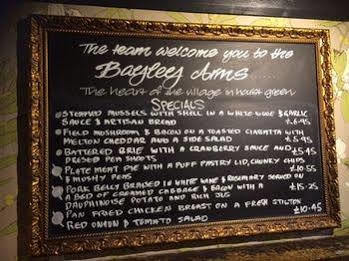 The team welcome you to the
Bayley Arms
The heart of the village in hurst green
SPECIALS
STEAMED MUSSELS WITH SHELL IN A WHITE WINE & GARLIC
SAUCE & ARTISAN BREAD £6.95
FIELD MUSHROOM & BACON ON A TOASTED CIABATTA WITH
MELTON CHEDDAR AND A SIDE SALAD £5.95
BATTERED BRIE WITH A CRANBERRY SAUCE AND
DRESED PEA SHOOTS £5.45
PLATE MEAT PIE WITH A PUFF PASTRY LID, CHUNKY CHIPS
& MUSHY PEAS £10.55
PORK BELLY BRAISED IN WHITE WINE & ROSEMARY SERVED ON
A BED OF CREAMED CABBAGE & BACON WITH A
DAUPHINOISE POTATO AND RICH JUS £15.25
PAN FRIED CHICKEN BREAST ON A FRESH STILTON
RED ONION & TOMATO SALAD £10.45